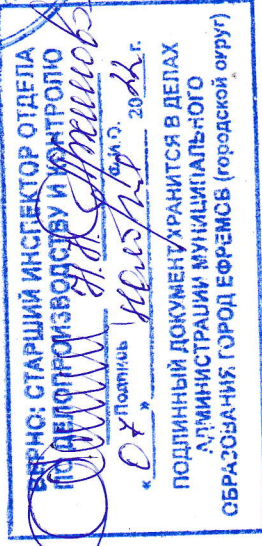 ВЕРНО: СТАРШИЙ ИНСПЕКТОР ОТДЕЛА
ПО ДЕЛОПРОИЗВОДСТВУ И КОНТРОЛЮ
Подпись Ф.И.О.
" 07 " ноября 2022 г.
ПОДЛИННЫЙ ДОКУМЕНТ ХРАНИТСЯ В ДЕЛАХ
АДМИНИСТРАЦИИ МУНИЦИПАЛЬНОГО
ОБРАЗОВАНИЯ ГОРОД ЕФРЕМОВ (городской округ)